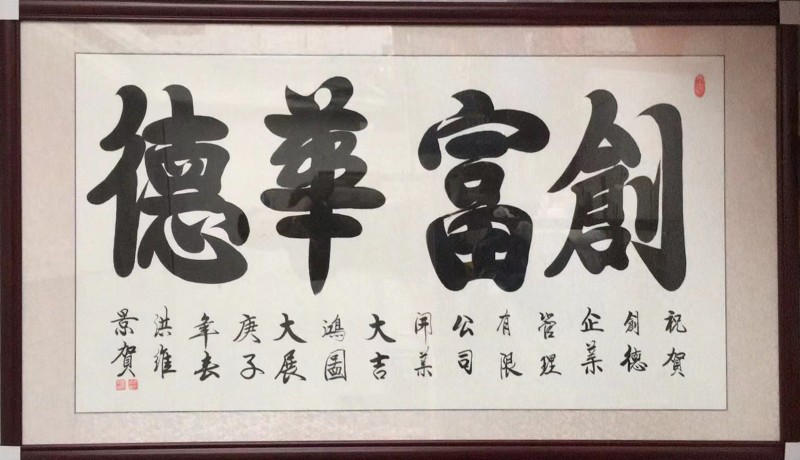 創富華德
祝賀
創德
企業
管理
有限
公司
開業
大吉
鴻圖
大展
庚子
年春
洪維
景賀